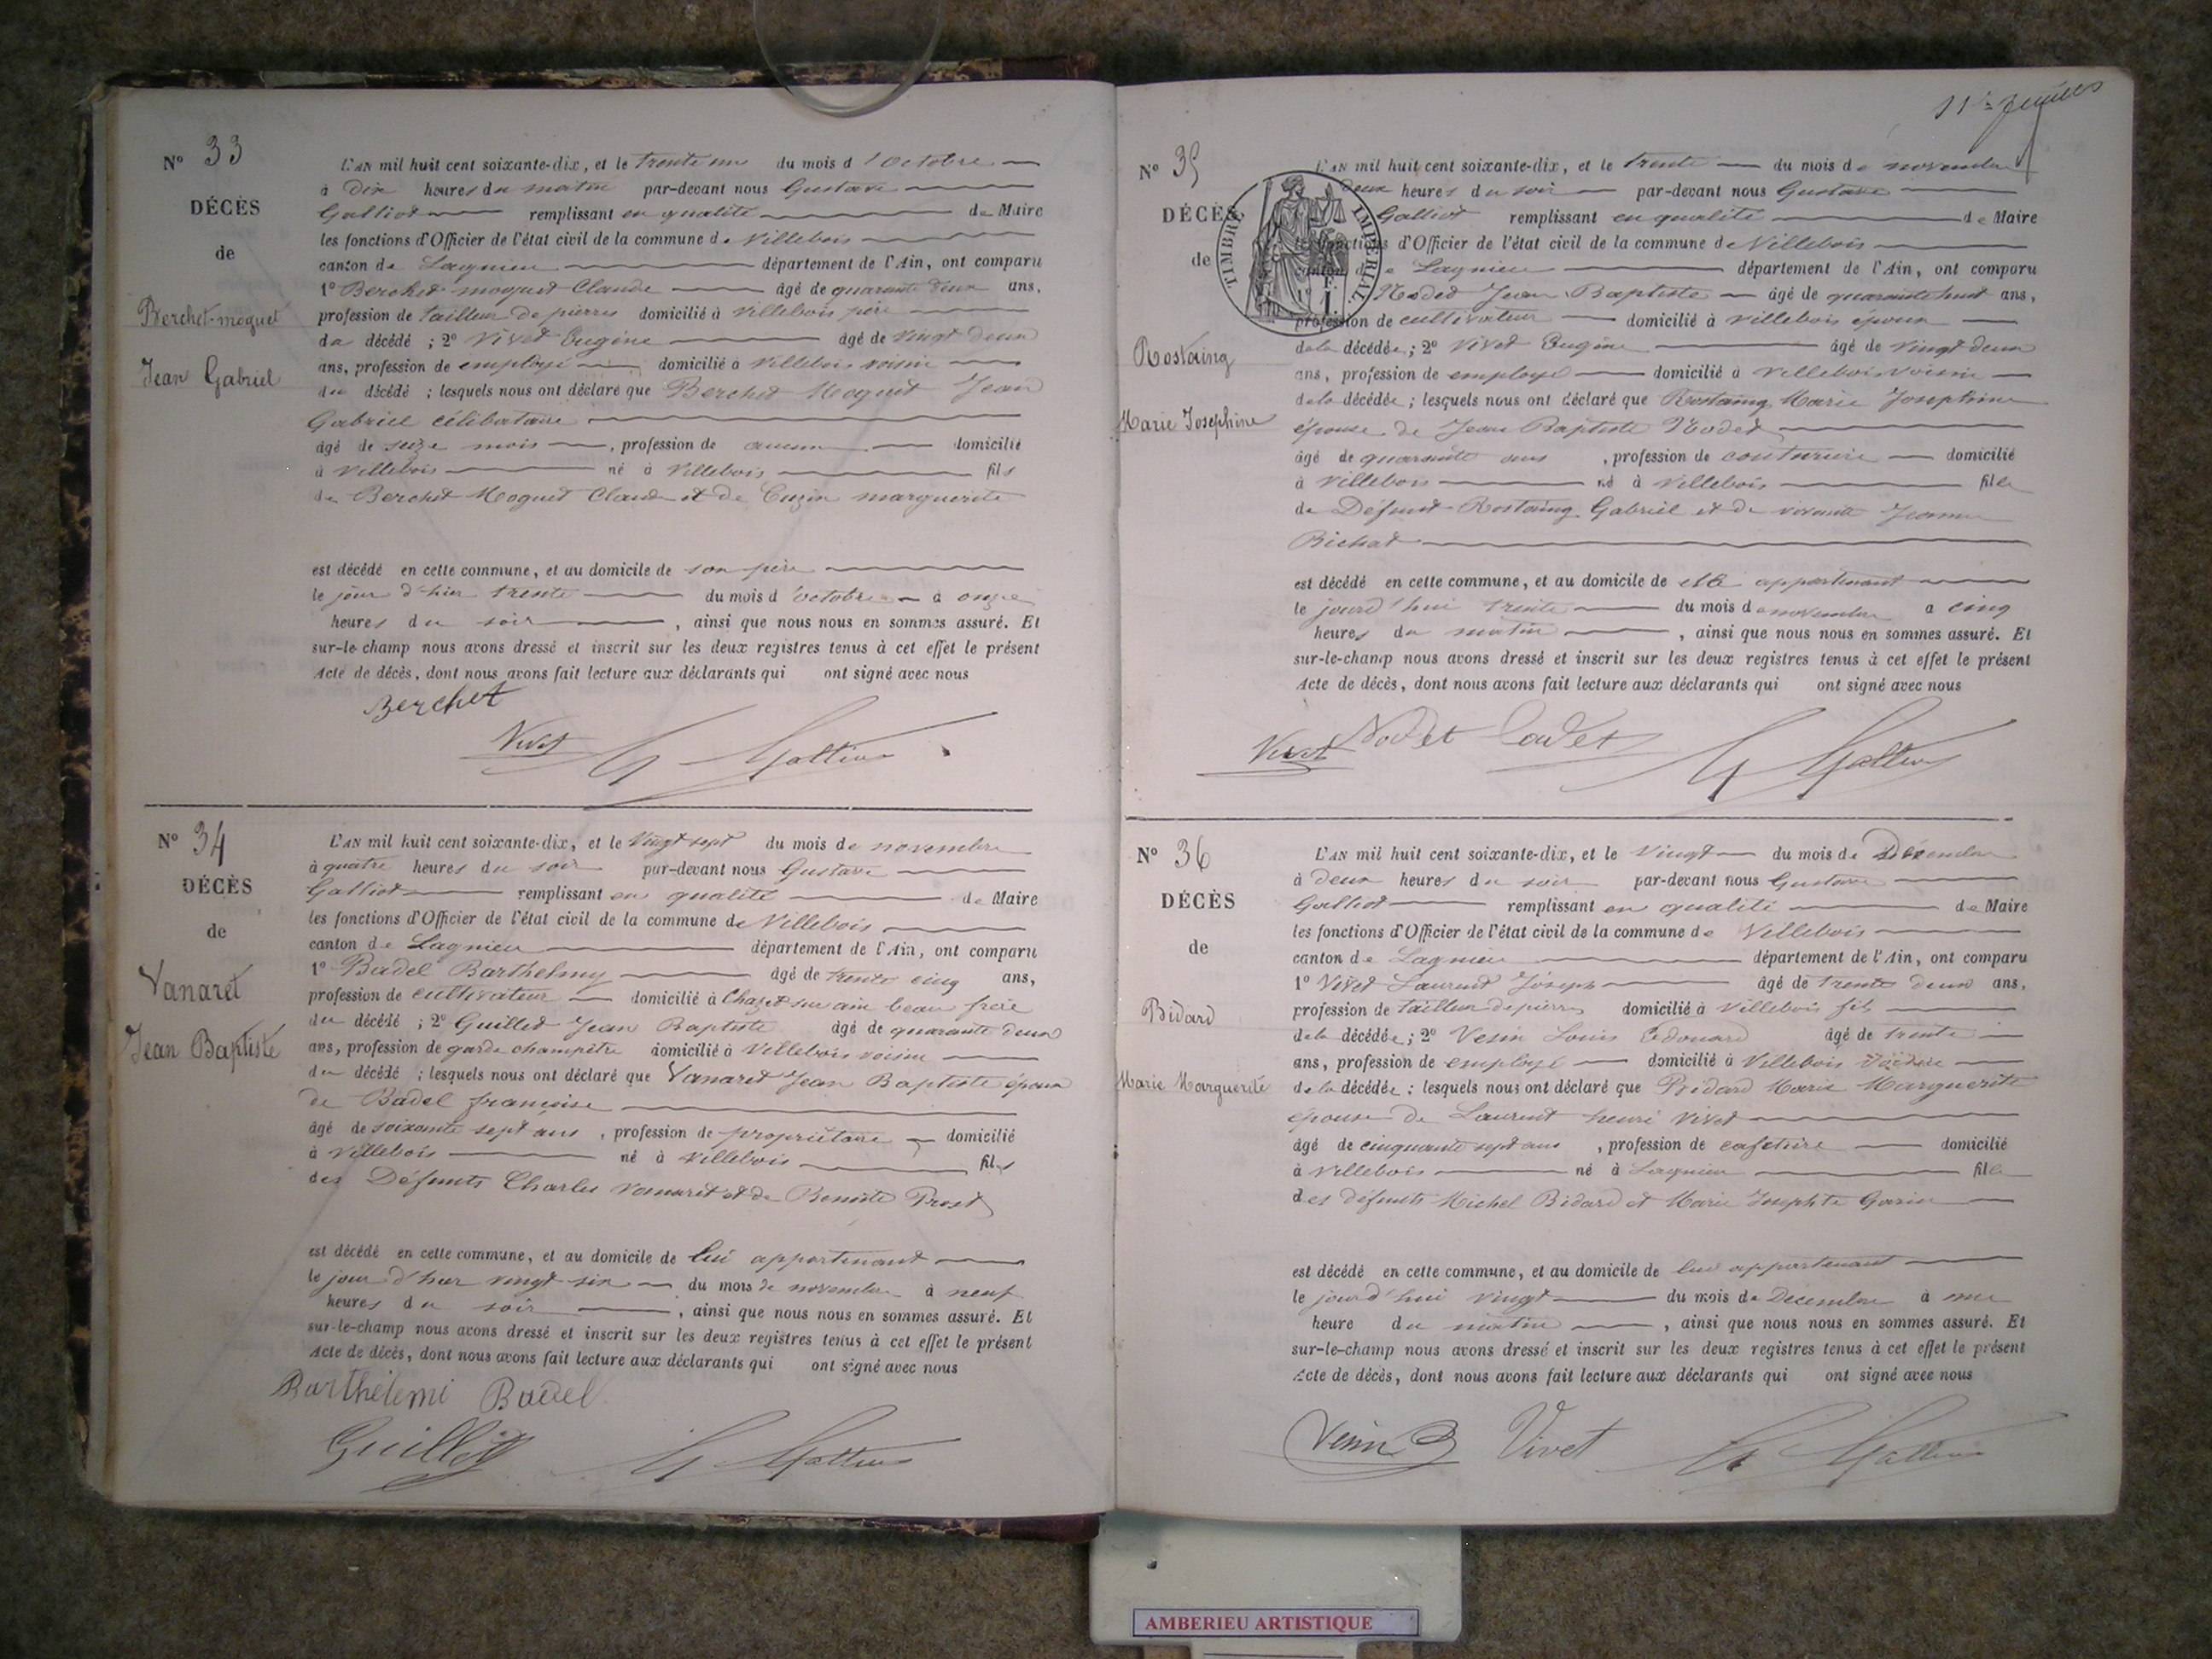 N° 33
DÉCÈS
de
Berchet-moquet
Jean Gabriel
L'AN mil huit cent soixante-dix, et le trente un du mois d'Octobre
à dix heures du matin par-devant nous Gustave
Galliot remplissant en qualité de Maire
les fonctions d'Officier de l'état civil de la commune de Villebois
canton de Lagnieu département de l'Ain, ont comparu
1° Berchet moquet Claude âgé de quarante deux ans,
profession de tailleur de pierres domicilié à Villebois père
du décédé ; 2° Vivet Eugène âgé de vingt deux
ans, profession de employé domicilié à Villebois voisin
du décédé ; lesquels nous ont déclaré que Berchet Moquet Jean
Gabriel célibataire
âgé de seize mois, profession de aucune domicilié
à Villebois né à Villebois fils
de Berchet Moquet Claude et de Cuzin marguerite
est décédé en cette commune, et au domicile de son père
le jour d'hier trente du mois d'octobre à onze
heures du soir, ainsi que nous nous en sommes assuré. Et
sur-le-champ nous avons dressé et inscrit sur les deux registres tenus à cet effet le présent
Acte de décès, dont nous avons fait lecture aux déclarants qui ont signé avec nous
Berchet
Vivet G
N° 34
DÉCÈS
de
Vanaret
Jean Baptiste
L'AN mil huit cent soixante-dix, et le Vingt sept du mois de novembre
à quatre heures du soir par-devant nous Gustave
Galliot remplissant en qualité de Maire
les fonctions d'Officier de l'état civil de la commune de Villebois
canton de Lagnieu département de l'Ain, ont comparu
1° Badel Barthelmy âgé de trente cinq ans,
profession de cultivateur domicilié à Chazet sur ain beau frère
du décédé ; 2° Guillet Jean Baptiste âgé de quarante deux
ans, profession de garde champêtre domicilié à Villebois voisin
du décédé ; lesquels nous ont déclaré que Vanaret Jean Baptiste époux
de Badel françoise
âgé de soixante sept ans, profession de propriétaire domicilié
à Villebois né à Villebois fils
des Défunts Charles Vanaret et de Benoite Prost
est décédé en cette commune, et au domicile de lui appartenant
le jour d'hier vingt six du mois de novembre à neuf
heures du soir, ainsi que nous nous en sommes assuré. Et
sur-le-champ nous avons dressé et inscrit sur les deux registres tenus à cet effet le présent
Acte de décès, dont nous avons fait lecture aux déclarants qui ont signé avec nous
Barthélemi Badel
Guillet G
11e feuillet
N° 35
DÉCÈS
de
TIMBRE IMPÉRIAL
Rostaing
Marie Josephine
L'AN mil huit cent soixante-dix, et le trente du mois de novembre
deux heures du soir par-devant nous Gustave
Galliot remplissant en qualité de Maire
les fonctions d'Officier de l'état civil de la commune de Villebois
canton de Lagnieu département de l'Ain, ont comparu
1° Nodet Jean Baptiste âgé de quarante huit ans,
profession de cultivateur domicilié à Villebois époux
de la décédée ; 2° Vivet Eugène âgé de vingt deux
ans, profession de employé domicilié à Villebois voisin
de la décédée ; lesquels nous ont déclaré que Rostaing Marie Josephine
épouse de Jean Baptiste Nodet
âgé de quarante ans, profession de couturière domicilié
à Villebois né à Villebois fille
de Défunt Rostaing Gabriel et de vivante Jeanne
Bichat
est décédé en cette commune, et au domicile de elle appartenant
le jourd'hui trente du mois de novembre a cinq
heures du matin, ainsi que nous nous en sommes assuré. Et
sur-le-champ nous avons dressé et inscrit sur les deux registres tenus à cet effet le présent
Acte de décès, dont nous avons fait lecture aux déclarants qui ont signé avec nous
Vivet Nodet Cadet G
N° 36
DÉCÈS
de
Bidard
Marie Marguerite
L'AN mil huit cent soixante-dix, et le Vingt du mois de Décembre
à deux heures du soir par-devant nous Gustave
Galliot remplissant en qualité de Maire
les fonctions d'Officier de l'état civil de la commune de Villebois
canton de Lagnieu département de l'Ain, ont comparu
1° Vivet Laurent Joseph âgé de trente deux ans,
profession de tailleur de pierres domicilié à Villebois fils
de la décédée ; 2° Vesin Louis Edouard âgé de trente
ans, profession de employé domicilié à Villebois
de la décédée ; lesquels nous ont déclaré que Bidard Marie Marguerite
épouse de Laurent henri Vivet
âgé de cinquante sept ans, profession de cafetière domicilié
à Villebois né à Lagnieu fille
des défunts Michel Bidard et Marie Josephte Garin
est décédé en cette commune, et au domicile de lui appartenant
le jourd'hui vingt du mois de Décembre à une
heure du matin, ainsi que nous nous en sommes assuré. Et
sur-le-champ nous avons dressé et inscrit sur les deux registres tenus à cet effet le présent
Acte de décès, dont nous avons fait lecture aux déclarants qui ont signé avec nous
Vesin Vivet G
AMBERIEU ARTISTIQUE